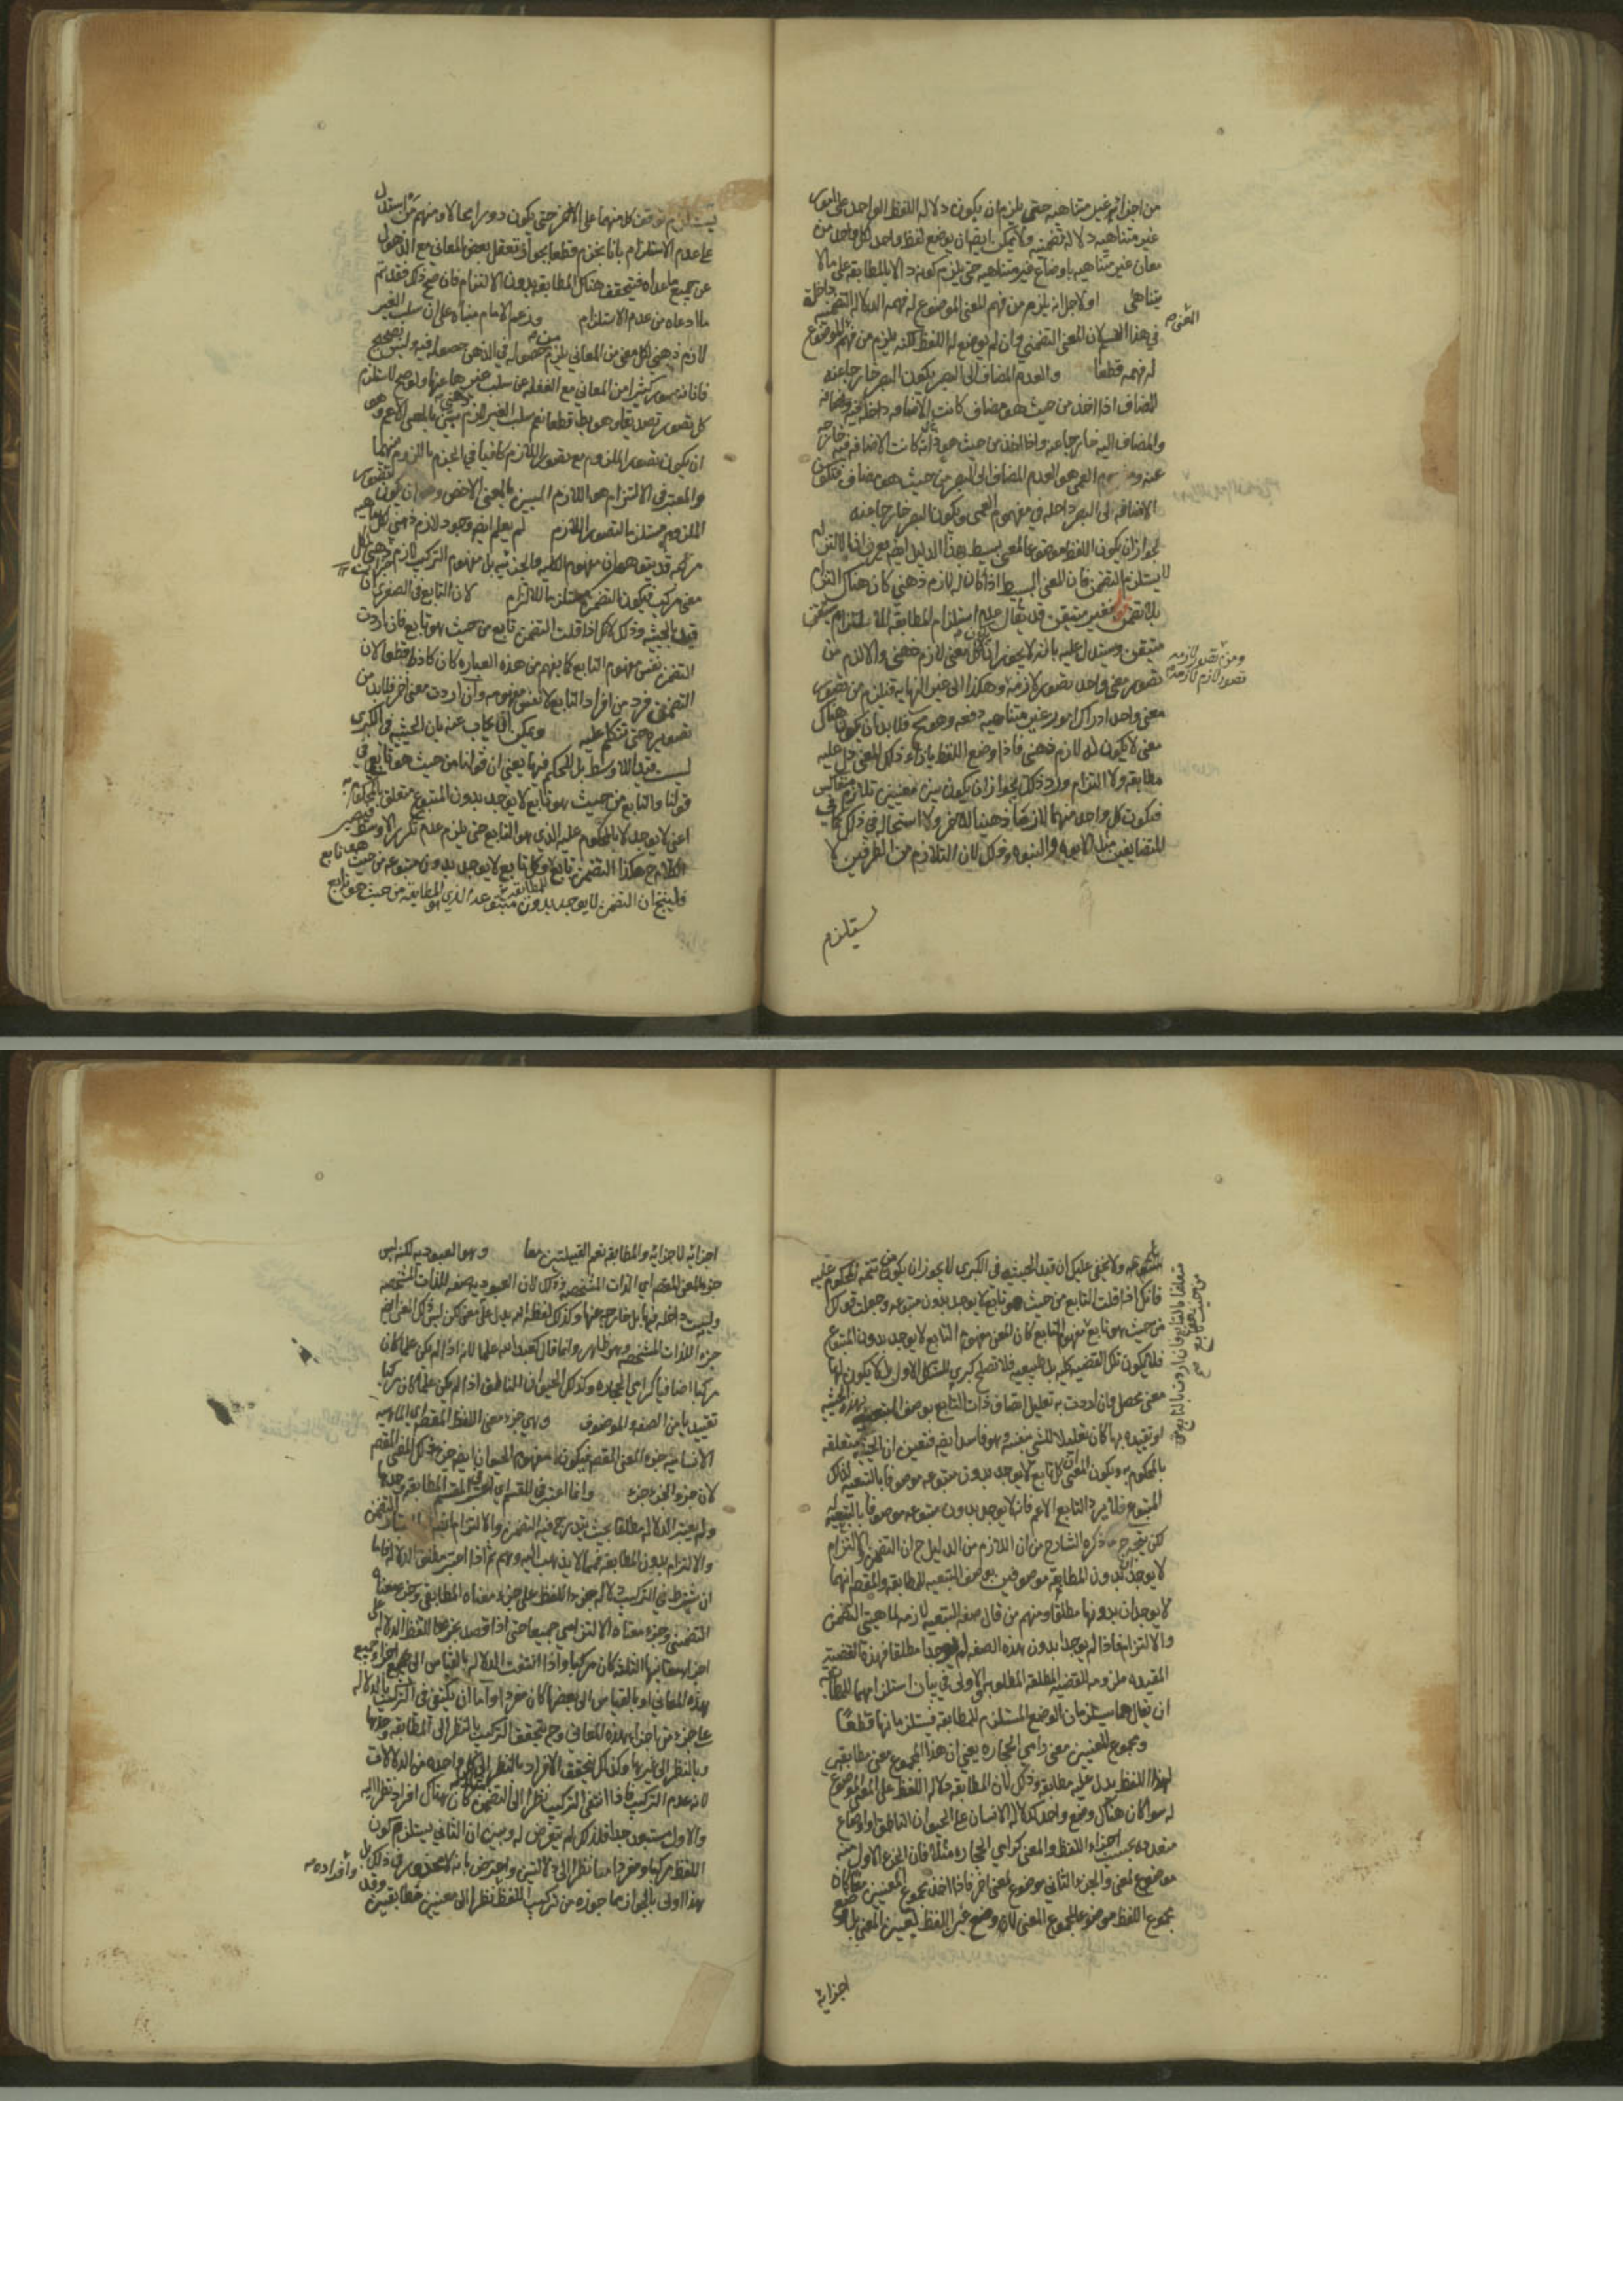 من اجزائه غير متناهيه حتى يلزم ان يكون دلاله اللفظ الواحد على امور
غير متناهيه دلاله تضمنيه ولا يمكن ايضا ان يوضع لفظ واحد لكل واحد من
معان غير متناهيه باوضاع غير متناهيه حتى يلزم كونه دالا بالمطابقه على مالا
يتناهى اولا جل انه يلزم من فهم المعنى الموضوع له فهمه الدلاله التضمنيه داخلة
في هذا القسم لان المعنى التضمني وان لم يوضع له اللفظ لكنه يلزم من فهم الموضوع
له فهمه قطعا والعدم المضاف الى البصر يكون البصر خارجا عنه
المضاف اذا اخذ من حيث هو مضاف كانت الاضافه داخلة فيه
والمضاف اليه خارجا عنه واذا اخذ من حيث هو ذاته كانت الاضافه خارجه
عنه ومفهوم العمى هو العدم المضاف الى البصر من حيث هو مضاف فتكون
الاضافه الى البصر داخله في مفهوم العمى ويكون البصر خارجا عنه
لجواز ان يكون اللفظ موضوعا لمعنى بسيط بهذا الدليل ايضا يعرف ان الالتزام
لا يستلزم التضمن فان المعنى البسيط اذا كان له لازم ذهني كان هناك التزام
بلا تضمن فغير متيقن قد يقال عدم استلزام المطابقه للالتزام متيقن
متيقن ويستدل عليه بانه لا يجوز ان يكون لكل معنى لازم ذهني والا لزم من
تصور معنى واحد تصور لازمه وهكذا الى غير النهايه فيلزم من تصور
معنى واحد ادراك امور غير متناهيه دفعه وهو مح فلا بد ان يكون هناك
معنى لا يكون له لازم ذهني فاذا وضع اللفظ بازاء ذلك المعنى دل عليه
مطابقه ولا التزام ورد ذلك بجواز ان يكون بين معنيين تلازم متعاكس
فيكون كل واحد منهما لازما ذهنيا للآخر ولا استحاله في ذلك كما في
المتضايفين مثل الابوه والبنوه وذلك لان التلازم من الطرفين لا
يستلزم
ومن تصور لازمه
تصور لازم لازمه
يستلزم توقف كل منهما على الاخر حتى يكون دورا محالا ومنهم من استدل
على عدم الاستلزام بانا نجزم قطعا بجواز تعقل بعض المعاني مع الذهول
عن جميع ما عداه فيتحقق هناك المطابقه بدون الالتزام فان صح ذلك فقد تم
ما ادعاه من عدم الاستلزام وزعم الامام مبناه على ان سلب الغير
لازم ذهني لكل معنى من المعاني يلزم من حصوله في الذهن حصوله فيه وليس بصحيح
فانا نتصور كثيرا من المعاني مع الغفله عن سلب غيرها عنها ولو صح لاستلزم
كل تصور تصديقا وهو بط قطعا نعم سلب الغير لازم بين بالمعنى الاعم وهو
ان يكون تصور الملزوم مع تصور اللازم كافيا في الجزم باللزوم بينهما
والمعتبر في الالتزام هو اللازم البين بالمعنى الاخص وهو ان يكون تصور
الملزوم مستلزما لتصور اللازم لم يعلم ايضا وجود لازم ذهني لكل ماهيه
مركبه قد يتوهم ان مفهوم الكليه والجزئيه بل مفهوم التركيب لازم ذهني لكل
معنى مركب فيكون التضمن مستلزما للالتزام لان التابع في الصغرى ان
قيد بالحيثيه وذلك لانك اذا قلت التضمن تابع من حيث هو تابع فان اردت
التضمن نفس مفهوم التابع كما يفهم من هذه العباره كان كاذبا قطعا لان
التضمن فرد من افراد التابع لا نفس مفهومه وان اردت معنى آخر فلا بد من
تصويره حتى نتكلم عليه ويمكن ان يجاب عنه بان الحيثيه في الكبرى
ليست قيدا للاوسط بل للحكم فيها يعني ان قولنا من حيث هو تابع في
قولنا والتابع من حيث هو تابع لا يوجد بدون المتبوع متعلق بالمحكوم به
اعني لا يوجد لا بالمحكوم عليه الذي هو التابع حتى يلزم عدم تكرر الاوسط فيصير
الكلام ح هكذا التضمن تابع وكل تابع لا يوجد بدون متبوعه من حيث هو تابع
فلينتج ان التضمن لا يوجد بدون متبوعه الذي هو المطابقه من حيث هو تابع
لمتبوعه ولا يخفى عليك ان قيد الحيثيه في الكبرى لا يجوز ان يكون من تتمه المحكوم عليه
فانك اذا قلت التابع من حيث هو تابع لا يوجد بدون متبوعه وجعلت قولك
من حيث هو تابع مفهوم التابع كان المعنى مفهوم التابع لا يوجد بدون المتبوع
فلا يكون تلك القضيه كليه بل طبيعيه فلا تصلح كبرى للشكل الاول بل لا يكون لها
معنى محصل وان اردت به تعليل اتصاف ذات التابع بوصف التبعيه بهذه الحيثيه
او تقييده بها كان تعليلا للشي بنفسه وهو فاسد ايضا فتعين ان الحيثيه متعلقه
بالمحكوم به ويكون المعنى ان كل تابع لا يوجد بدون متبوعه موصوفا بالتبعيه لذلك
المتبوع فلا يرد التابع الاعم فانه لا يوجد بدون متبوعه موصوفا بالتبعيه له
لكن يتجه ح ما ذكره الشارح من ان اللازم من الدليل ح ان التضمن والالتزام
لا يوجدان بدون المطابقه موصوفين بوصف التبعيه للمطابقه والمقصد انهما
لا يوجدان بدونها مطلقا ومنهم من قال صفه التبعيه لازمه لماهيتي التضمن
والالتزام فاذا لم يوجدا بدون هذه الصفه لم يوجدا مطلقا فهذه القضيه
المقيده ملزومه للقضيه المطلقه المطلوبه والاولى في بيان استلزامهما للمطابقه
ان يقال هما يستلزمان الوضع المستلزم للمطابقه فيستلزمانها قطعا
ومجموع المعنيين معنى رامي الحجاره يعني ان هذا المجموع معنى مطابقي
لهذا اللفظ يدل عليه مطابقه وذلك لان المطابقه دلاله اللفظ على المعنى الموضوع
له سوا كان هناك وضع واحد كدلاله الانسان على الحيوان الناطق او اوضاع
متعدده بحسب اجزاء اللفظ والمعنى كرامي الحجاره مثلا فان الجزء الاول منه
موضوع لمعنى والجزء الثاني موضوع لمعنى آخر فاذا اخذ مجموع المعنيين معا كان
مجموع اللفظ موضوعا لمجموع المعنى لا وضع عين اللفظ لعين المعنى بل وضع
اجزائه
متعلقا بالتابع فان اردت بالتابع من
من حيث هو تابع
اجزائه لاجزائه والمطابقه تعم القبيلتين معا وهو العبوديه لكنه ليس
جزء المعنى المقصد اي الذات المشخصه وذلك لان العبوديه صفه للذات المشخصه
وليست داخله فيها بل خارجه عنها وكذلك لفظ الله يدل على معنى لكن ليس ذلك المعنى ايضا
جزء للذات المشخصه وهو ظاهر وانما قال كعبد الله علما لانه اذا لم يكن علما كان
مركبا اضافيا كرامي الحجاره وكذلك الحيوان الناطق اذا لم يكن علما كان مركبا
تقييديا من الصفه والموصوف وهي جزء معنى اللفظ المقصد اي الماهيه
الانسانيه جزء المعنى المقصد فيكون مفهوم الحيوان ايضا جزءا لذلك المعنى المقصد
لان جزء الجزء جزء وانما اعتبر في المقسم اي اعتبر في المقسم المطابقه وحدها
ولم يعتبر الدلاله مطلقا بحيث يندرج فيه التضمن والالتزام
والالتزام بدون المطابقه فمما لا يذهب اليه وهم ثم اذا اعتبر مطلق الدلاله فاما
ان يشترط في التركيب دلاله جزء اللفظ على جزء معناه المطابقي وجزء معناه
التضمني وجزء معناه الالتزامي جميعا حتى اذا قصد بجزء اللفظ الدلاله على
اجزاء معانيها الثلثه كان مركبا واذا انتفت الدلاله بالقياس الى اجزاء جميع
هذه المعاني او بالقياس الى بعضها كان مفردا واما ان يكتفى في التركيب بالدلاله
على جزء من اجزاء هذه المعاني وح يتحقق التركيب بالنظر الى المطابقه وحدها
وبالنظر الى غيرها وكذلك يتحقق الافراد بالنظر الى كل واحده من الدلالات
لانه عدم التركيب فاذا انتفى التركيب نظرا الى التضمن مثلا كان هناك افراد نظرا اليه
والاول مستبعد جدا فلذلك لم يتعرض له وبين ان الثاني يستلزم كون
اللفظ مركبا ومفردا معا نظرا الى دلالتين واعترض بانه لا محذور في ذلك بل
هذا اولى بالجواز مما جوزه من تركيب اللفظ وافراده نظرا الى معنيين مطابقيين